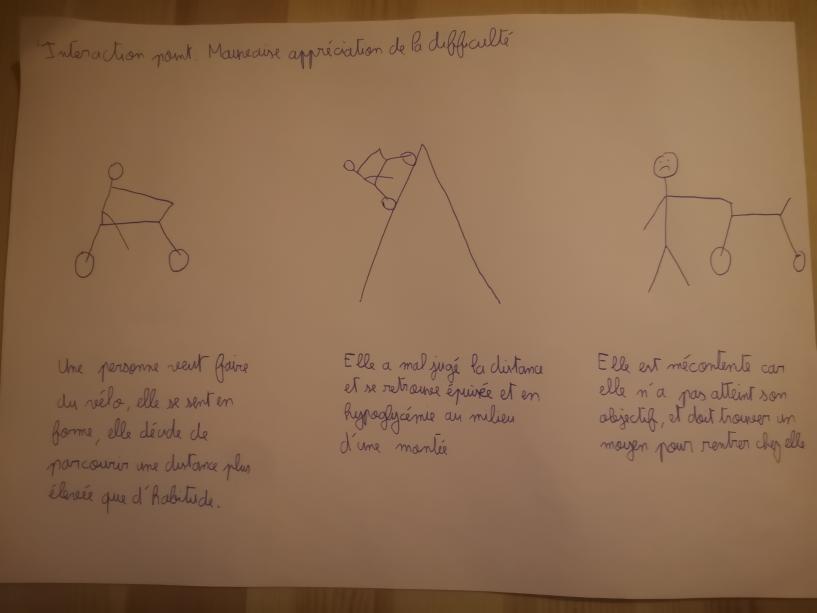 Interaction point. Mauvaise appréciation de la difficulté
Une personne veut faire
du vélo, elle se sent en
forme, elle décide de
parcourir une distance plus
élevée que d'habitude.
Elle a mal jugé la distance
et se retrouve épuisée et en
hypoglycémie au milieu
d'une montée
Elle est mécontente car
elle n'a pas atteint son
objectif, et doit trouver un
moyen pour rentrer chez elle